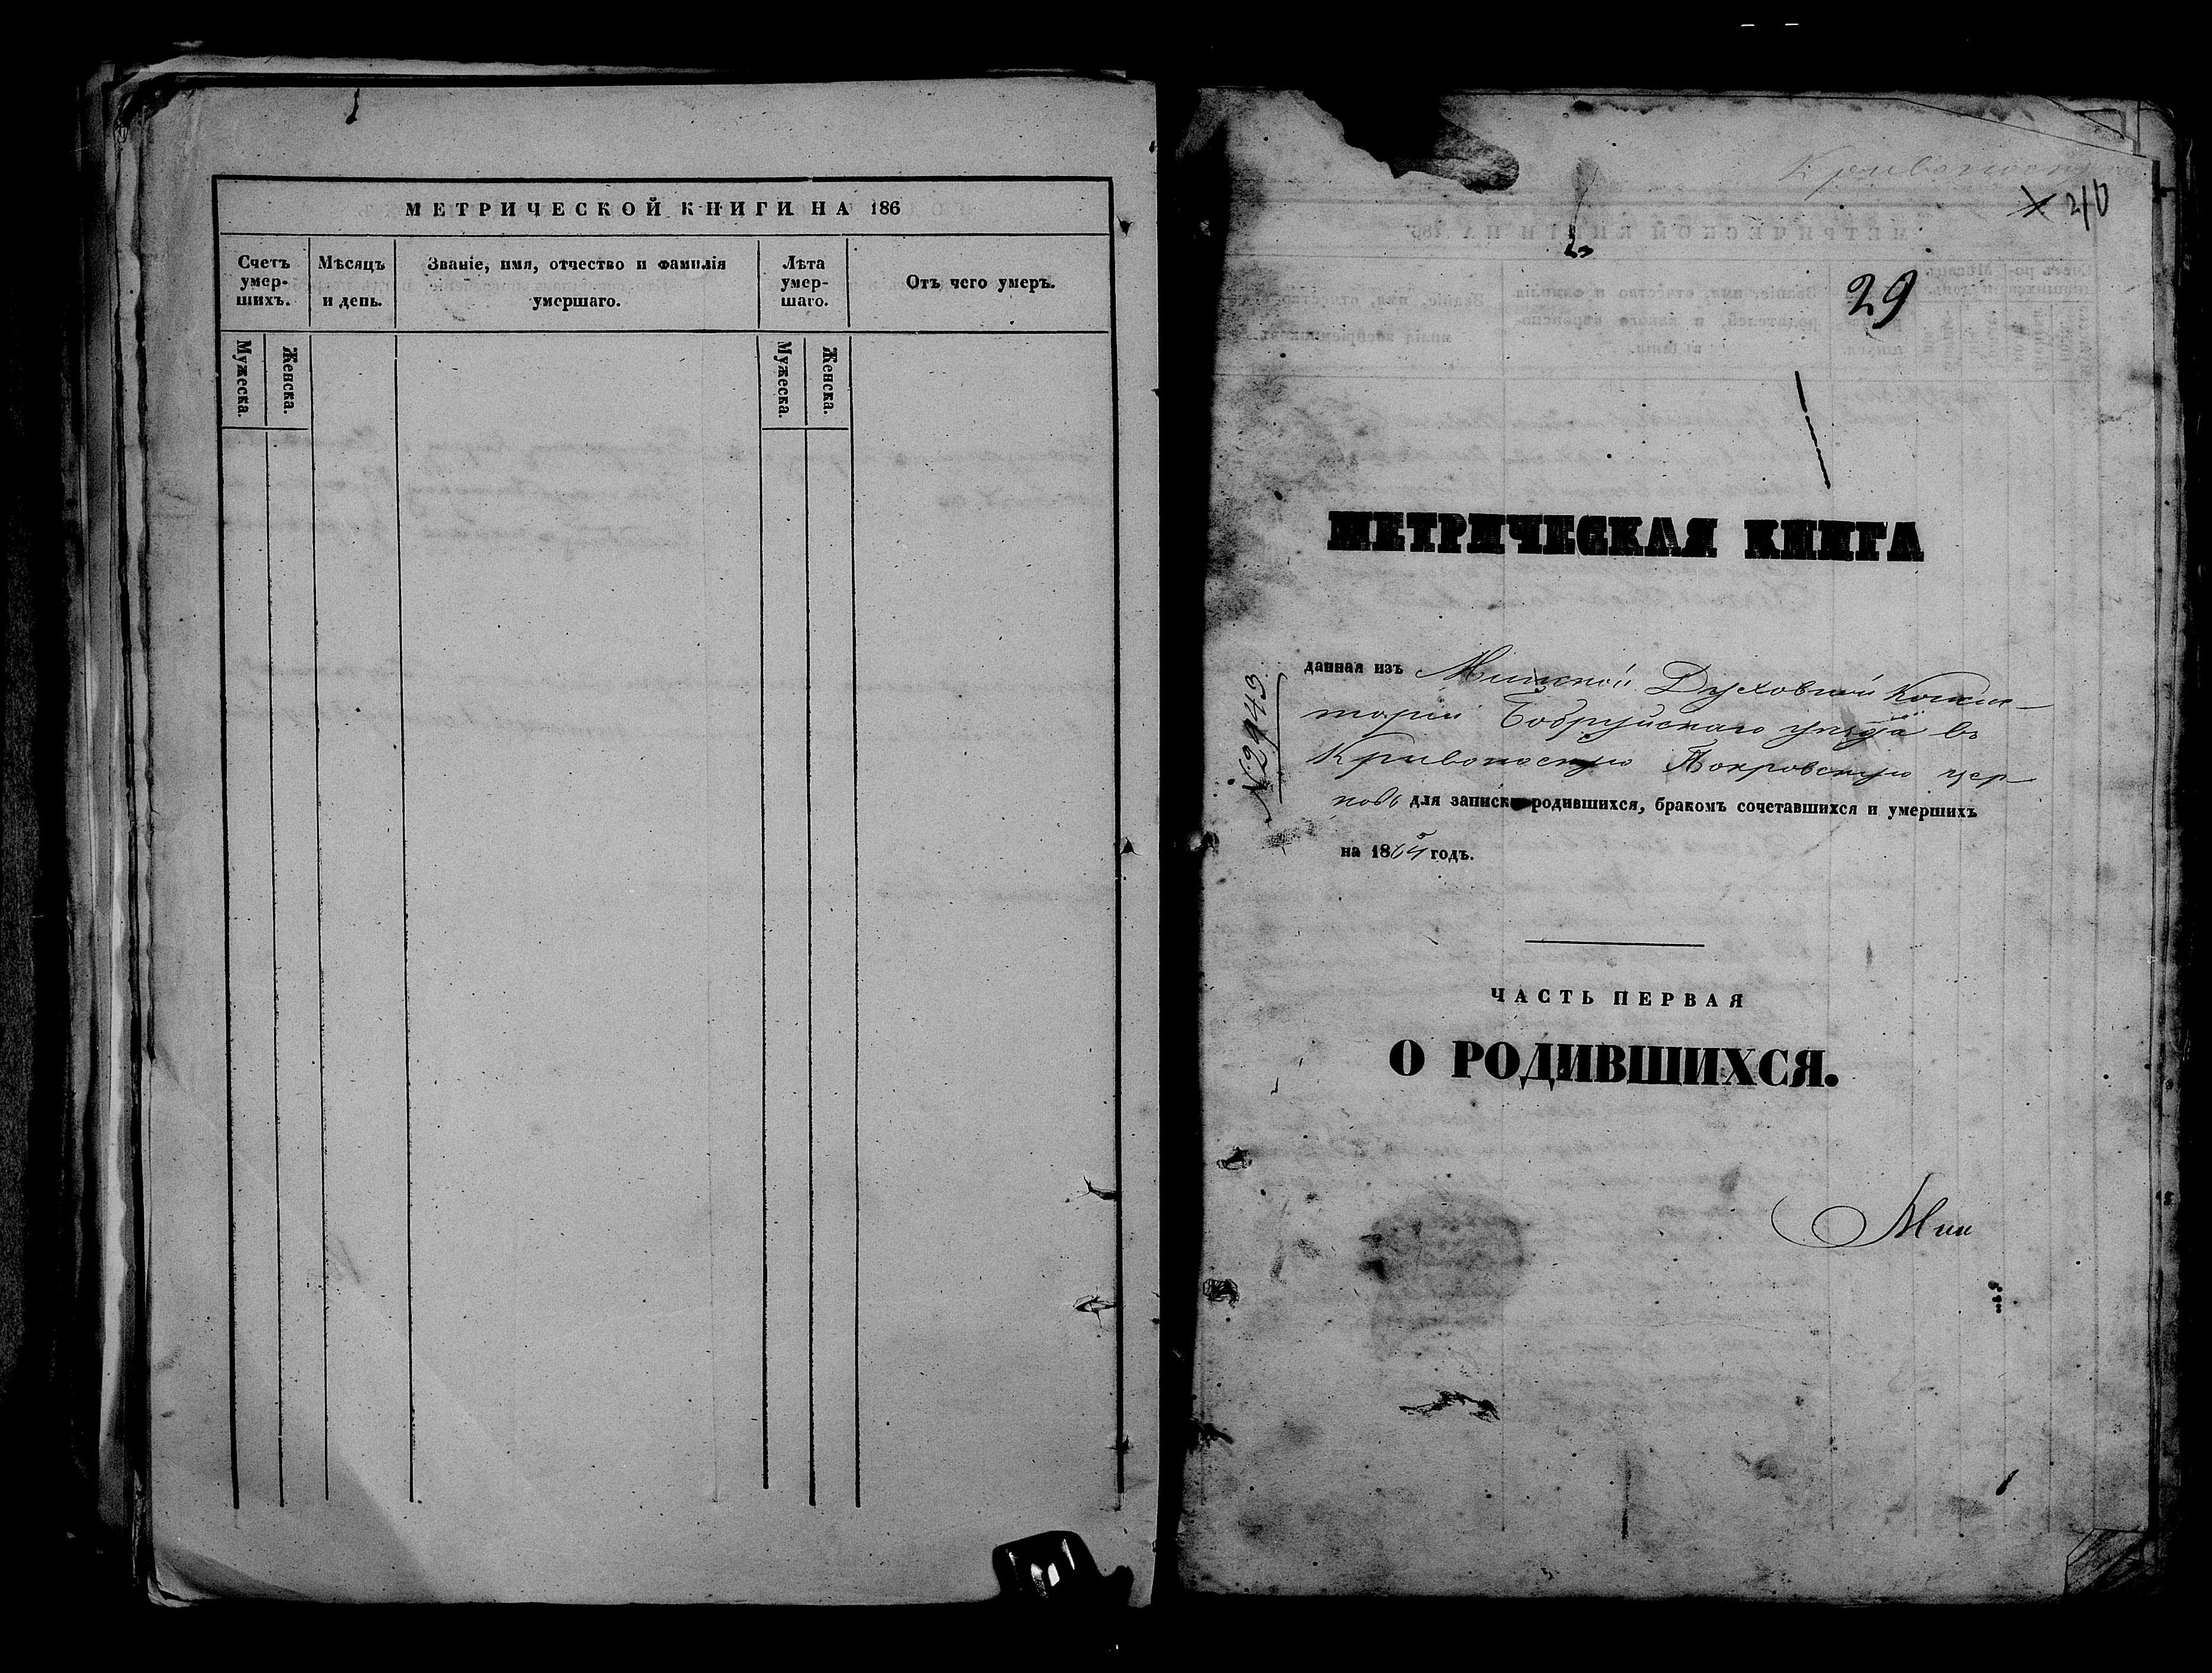 МЕТРИЧЕСКОЙ КНИГИ НА 186
Счетъ умер-шихъ.
Мѣсяцъ и день.
Званіе, имя, отчество и фамилія умершаго.
Лѣта умер-шаго.
Отъ чего умеръ.
Мужеска.
Женска.
Мужеска.
Женска.
210
29
МЕТРИЧЕСКАЯ КНИГА
данная изъ Минской Духовной Консис-
торіи Бобруйскаго уѣзда въ
Кривоносскую Покровскую цер-
ковь для записки родившихся, бракомъ сочетавшихся и умершихъ
на 1864 годъ.
№ 2943
ЧАСТЬ ПЕРВАЯ
О РОДИВШИХСЯ.
Мин